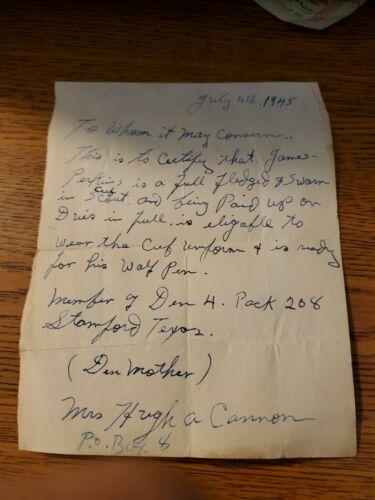 July 4th. 1945
To Whom it May Concern..
This is to certify that James
Perkins is a full fledged & Sworn
in Cub Scout. and being Paid up on
Dues in full. is eligable to
wear the Cub uniform & is ready
for his Wolf Pen.
Member of Den 4. Pack 208
Stamford Texas.
(Den Mother)
Mrs Hugh A Cannon
P.O. Box. 8